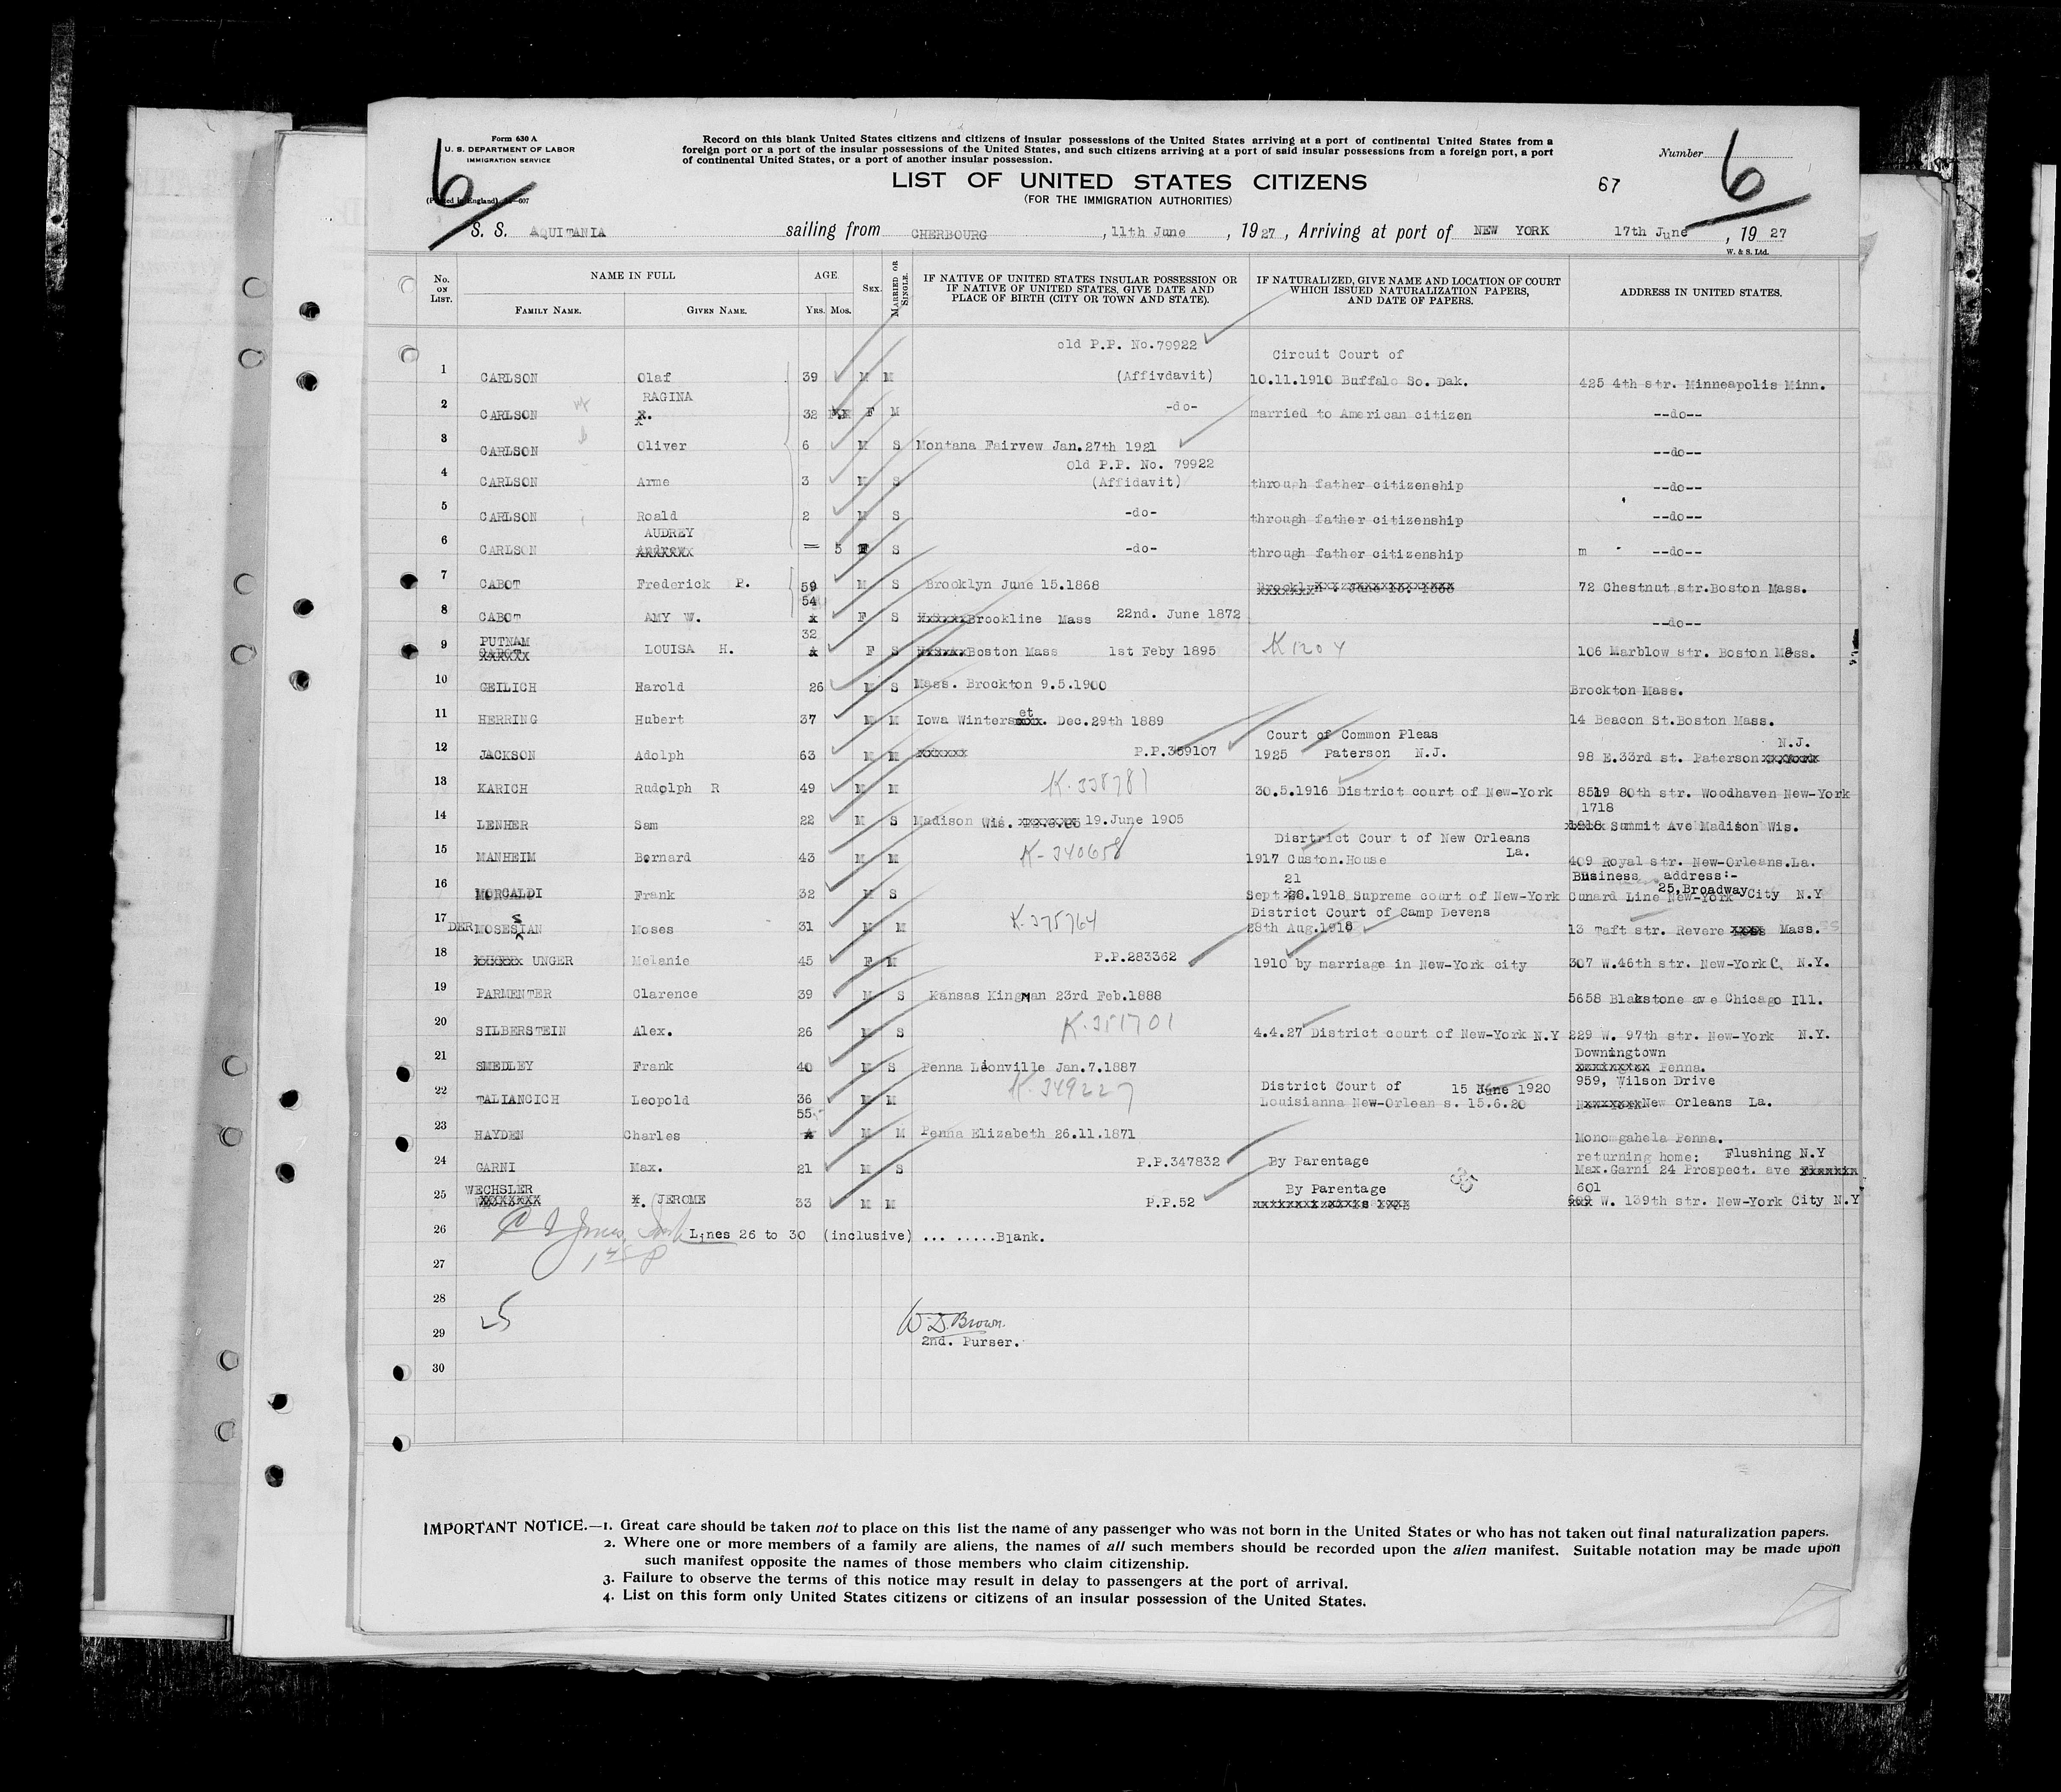 Form 630 A
U. S. DEPARTMENT OF LABOR
IMMIGRATION SERVICE
Record on this blank United States citizens and citizens of insular possessions of the United States arriving at a port of continental United States from a
foreign port or a port of the insular possessions of the United States, and such citizens arriving at a port of said insular possessions from a foreign port, a port
of continental United States, or a port of another insular possession.
Number 6
6
LIST OF UNITED STATES CITIZENS
67
(FOR THE IMMIGRATION AUTHORITIES)
S. S. AQUITANIA sailing from CHERBOURG, 11th June, 1927, Arriving at port of NEW YORK 17th June, 1927
W. & S. Ltd.
No. ON LIST. NAME IN FULL AGE. SEX. MARRIED OR SINGLE. IF NATIVE OF UNITED STATES INSULAR POSSESSION OR IF NATIVE OF UNITED STATES, GIVE DATE AND PLACE OF BIRTH (CITY OR TOWN AND STATE). IF NATURALIZED, GIVE NAME AND LOCATION OF COURT WHICH ISSUED NATURALIZATION PAPERS, AND DATE OF PAPERS. ADDRESS IN UNITED STATES.
FAMILY NAME. GIVEN NAME. YRS. MOS.
old P.P. No.79922 Circuit Court of
1 CARLSON Olaf 39 M M (Affivdavit) 10.11.1910 Buffalo So. Dak. 425 4th str. Minneapolis Minn.
RAGINA
2 CARLSON 32 F M -do- married to American citizen --do--
3 CARLSON Oliver 6 M S Montana Fairvew Jan.27th 1921 --do--
Old P.P. No. 79922
4 CARLSON Arme 3 M S (Affidavit) through father citizenship --do--
5 CARLSON Roald 2 M S -do- through father citizenship --do--
AUDREY
6 CARLSON 5 F S -do- through father citizenship m --do--
7 CABOT Frederick P. 59 M S Brooklyn June 15.1868 72 Chestnut str.Boston Mass.
54
8 CABOT AMY W. F S Brookline Mass 22nd. June 1872 --do--
PUTNAM 32
9 LOUISA H. F S Boston Mass 1st Feby 1895 K 1204 106 Marblow str. Boston Mass.
10 GEILICH Harold 26 M S Mass. Brockton 9.5.1900 Brockton Mass.
11 HERRING Hubert 37 M M Iowa Winterset. Dec.29th 1889 14 Beacon St.Boston Mass.
Court of Common Pleas N.J.
12 JACKSON Adolph 63 M M P.P.359107 1925 Paterson N.J. 98 E.33rd st. Paterson
13 KARICH Rudolph R 49 M M K.338781 30.5.1916 District court of New-York 8519 80th str. Woodhaven New-York
1718
14 LENHER Sam 22 M S Madison Wis. 19.June 1905 Summit Ave Madison Wis.
Disrtrict Cour t of New Orleans
15 MANHEIM Bernard 43 M M K-340658 1917 Custon.House La. 409 Royal str. New-Orleans.La.
21 Business address:-
16 MORCALDI Frank 32 M S Sept 28.1918 Supreme court of New-York Cunard Line New-York 25,Broadway City N.Y
District Court of Camp Devens
17 DERMOSESIAN Moses 31 M M K.375764 28th Aug.1918 13 Taft str. Revere Mass.
18 UNGER Melanie 45 F M P.P.283362 1910 by marriage in New-York city 307 W.46th str. New-York C. N.Y.
19 PARMENTER Clarence 39 M S Kansas Kingman 23rd Feb.1888 5658 Blakstone av e Chicago Ill.
20 SILBERSTEIN Alex. 26 M S K.351701 4.4.27 District court of New-York N.Y 229 W. 97th str. New-York N.Y.
Downingtown
21 SMEDLEY Frank 40 M S Penna Lionville Jan.7.1887 Penna.
District Court of 15 June 1920 959, Wilson Drive
22 TALIANCICH Leopold 36 M M K.349227 Louisianna New-Orlean s. 15.6.20 New Orleans La.
55
23 HAYDEN Charles M M Penna Elizabeth 26.11.1871 Monomgahela Penna.
returning home: Flushing N.Y
24 GARNI Max. 21 M S P.P.347832 By Parentage Max.Garni 24 Prospect. ave
WECHSLER By Parentage 35 601
25 JEROME 33 M M P.P.52 W. 139th str. New-York City N.Y
26 Lines 26 to 30 (inclusive) ... .....Blank.
27
28
25
W.D.Brown.
29 2nd. Purser.
30
IMPORTANT NOTICE.—1. Great care should be taken not to place on this list the name of any passenger who was not born in the United States or who has not taken out final naturalization papers.
2. Where one or more members of a family are aliens, the names of all such members should be recorded upon the alien manifest. Suitable notation may be made upon
such manifest opposite the names of those members who claim citizenship.
3. Failure to observe the terms of this notice may result in delay to passengers at the port of arrival.
4. List on this form only United States citizens or citizens of an insular possession of the United States.